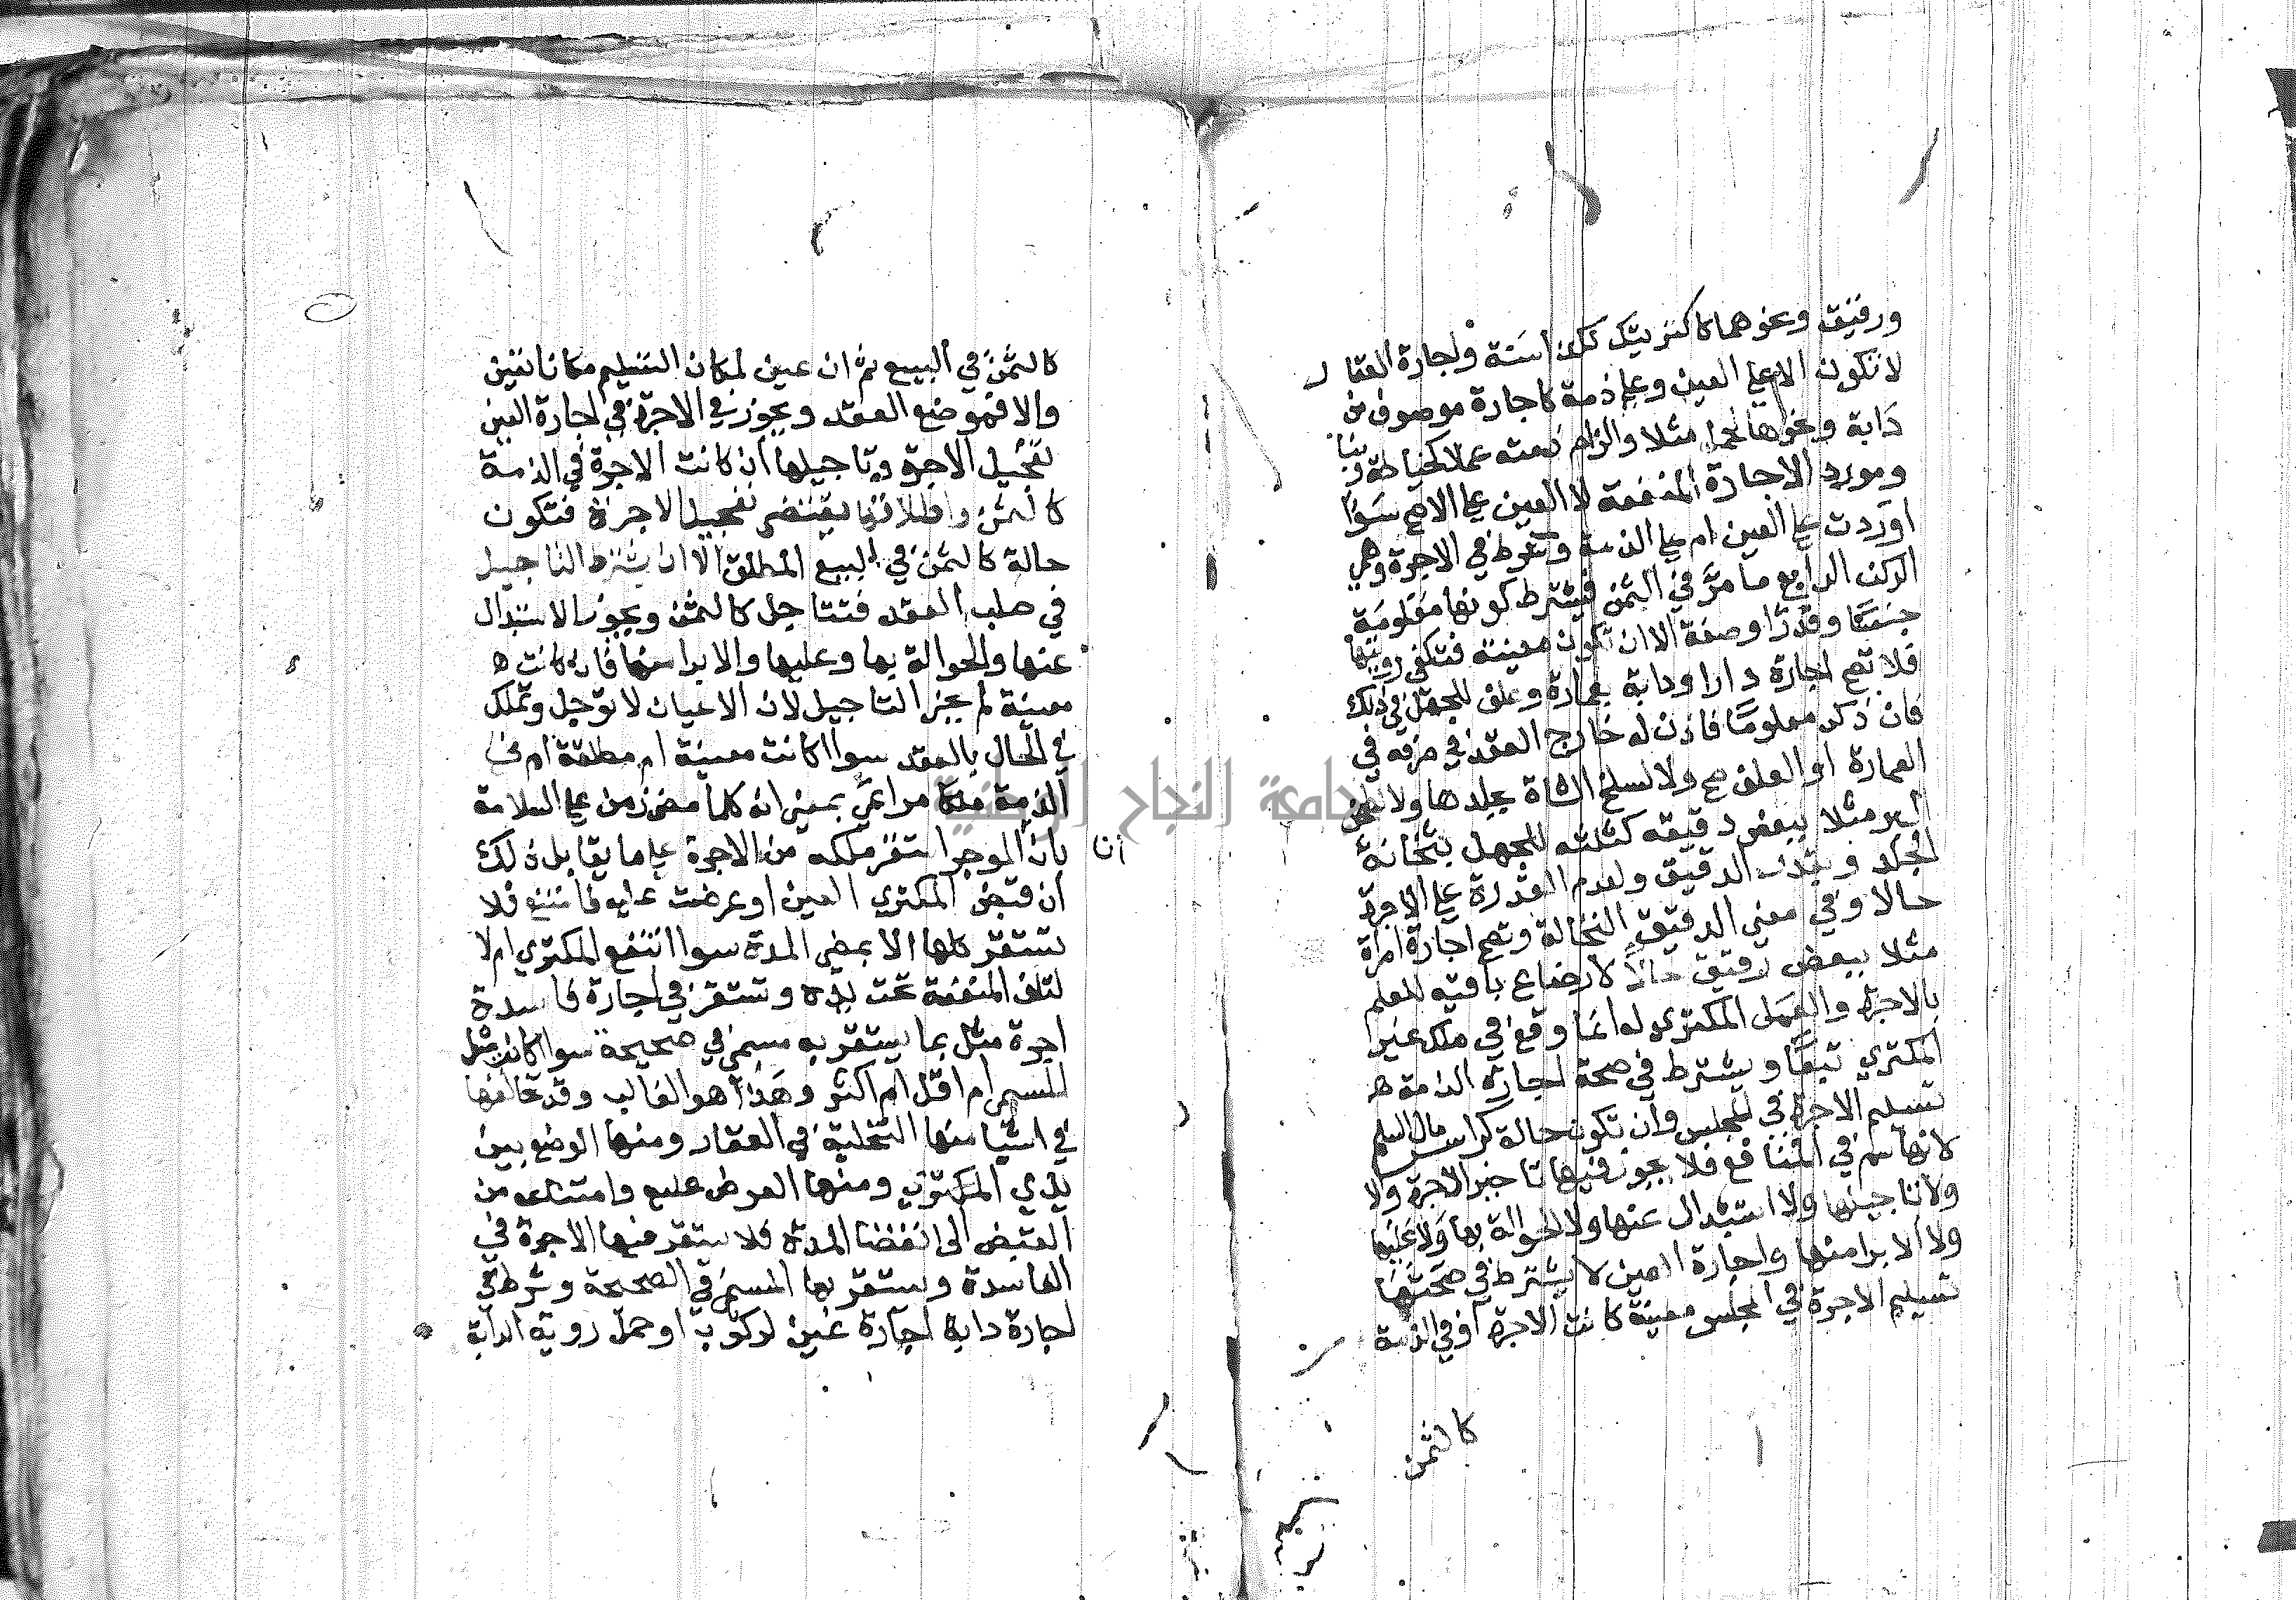 ورقيق ونحوهما كاكتريتك كذا سنة واجارة العقار
لا تكون الا علي العين وعلي ذمة كاجارة موصوف من
دابة ونحوها لحمل مثلا والزام ذمته عملا كخياطة وبنا
ومورد الاجارة المنفعة لا العين علي الاصح سوا
اوردت علي العين ام علي الذمة وشرط في الاجرة وهي
الركن الرابع ما مر في الثمن فيشترط كونها معلومة
جنسا وقدرا وصفة الا ان تكون معينة فتكفي رويتها
فلا تصح اجارة دار او دابة بعمارة وعلف للجهل في ذلك
فان ذكر معلوما فاذن له خارج العقد في صرفه في
العمارة او العلف صح ولا لسلخ الشاة بجلدها ولا لطحن
البر مثلا ببعض دقيقه كثلثه للجهل بثخانة
الجلد وبقدر الدقيق ولعدم القدرة علي الاجرة
حالا وفي معني الدقيق النخالة وتصح اجارة امراة
مثلا ببعض رقيق حالا لارضاع باقيه للعلم
بالاجرة والعمل المكتري له انما وقع في ملك غير
المكتري تبعا ويشترط في صحة اجارة الذمة ه
تسليم الاجرة في المجلس وان تكون حالة كراس مال السلم
لانها سلم في المنافع فلا يجوز فيها تاخير الاجرة ولا
ولا تاجيلها ولا استبدال عنها ولا الحوالة بها ولا عليها
ولا الابرا منها واجارة العين لا يشترط في صحتها
تسليم الاجرة في المجلس معينة كانت الاجرة او في الذمة
كالثمن
كالثمن في البيع ثم ان عين لمكان التسليم مكانا تعين
والا فموضع العقد ويجوز في الاجرة في اجارة العين
تعجيل الاجرة وتاجيلها ان كانت الاجرة في الذمة
كالثمن واطلاقها يقتضي تعجيل الاجرة فتكون
حالة كالثمن في البيع المطلق الا ان يشترط التاجيل
في صلب العقد فتتاجل كالثمن ويجوز الاستبدال
عنها والحوالة بها وعليها والابرا منها فان كانت ه
معينة لم يجز التاجيل لان الاعيان لا توجل وتملك
في الحال بالعقد سوا كانت معينة ام مطلقة ام في
الذمة ملكا مراعي بمعني انه كلما مضي زمن علي السلامة
بان ان الموجر استقر ملكه من الاجرة علي ما يقابل ذلك
ان قبض المكتري العين او عرضت عليه فامتنع فلا
تستقر كلها الا بمضي المدة سوا انتفع المكتري ام لا
لتلف المنفعة تحت يده وتستقر في اجارة فاسدة
اجرة مثل بما يستقر به مسمي في صحيحة سوا كانت مثل
المسمي ام اقل ام اكثر وهذا هو الغالب وقد تخالفها
في اشيا منها التخلية في العقار ومنها الوضع بين
يدي المكتري ومنها العرض عليه وامتناعه من
القبض الي انقضا المدة فلا تستقر فيها الاجرة في
الفاسدة ويستقر بها المسمي في الصحيحة وشرط في
اجارة دابة اجارة عين لركوب او حمل روية الدابة
جامعة النجاح الوطنية